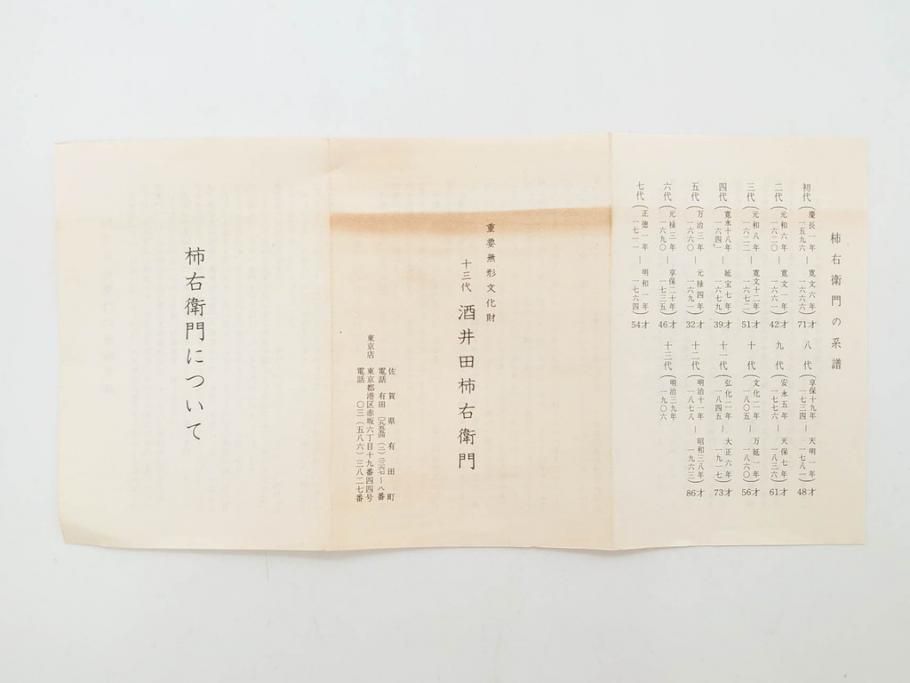 柿右衛門の系譜
初代(慶長一年 一五九六 — 寛文六年 一六六六)71才
二代(元和六年 一六二〇 — 寛文一年 一六六一)42才
三代(元和八年 一六二二 — 寛文十二年 一六七二)51才
四代(寛永十八年 一六四一 — 延宝七年 一六七九)39才
五代(万治三年 一六六〇 — 元禄四年 一六九一)32才
六代(元禄三年 一六九〇 — 享保二十年 一七三五)46才
七代(正徳一年 一七一一 — 明和一年 一七六四)54才
八代(享保十九年 一七三四 — 天明一年 一七八一)48才
九代(安永五年 一七七六 — 天保七年 一八三六)61才
十代(文化二年 一八〇五 — 万延一年 一八六〇)56才
十一代(弘化二年 一八四五 — 大正六年 一九一七)73才
十二代(明治十一年 一八七八 — 昭和三八年 一九六三)86才
十三代(明治三九年 一九〇六
重要無形文化財
十三代 酒井田柿右衛門
佐賀県有田町
電話 有田 (二)三 〜八番
東京店 東京都港区赤坂六丁目十九番四四号
電話 〇三(五八六)三八二七番
柿右衛門について